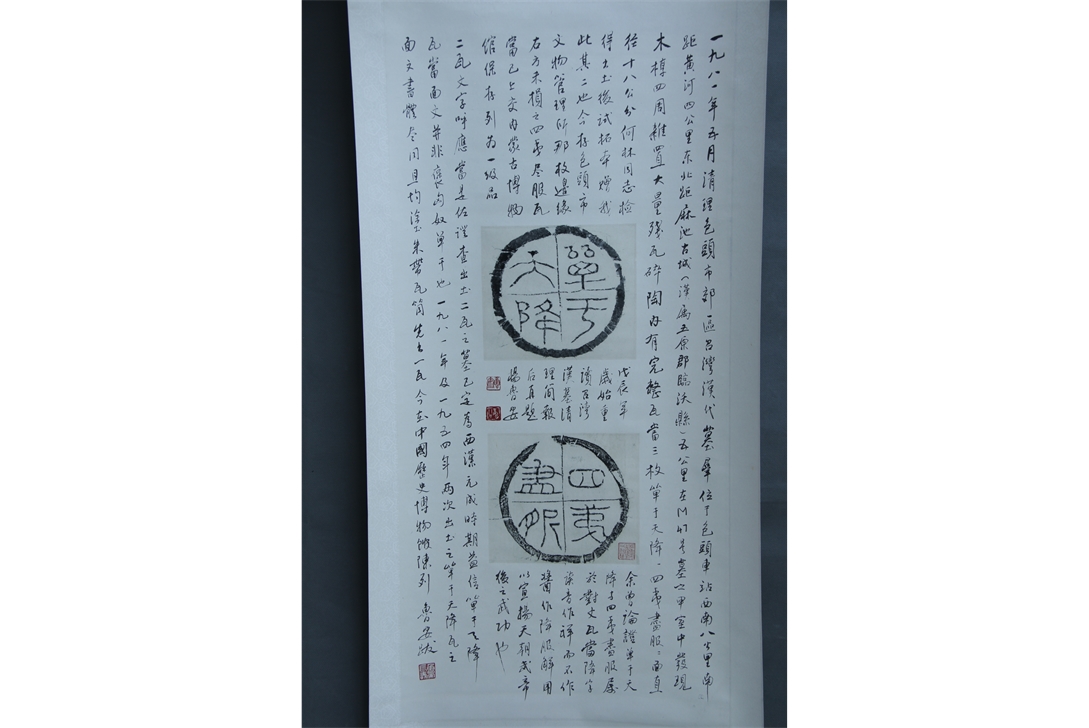 一九八一年五月清理包頭市郊區召灣漢代墓羣位于包頭車站西南八公里南
距黃河四公里东北距麻池古城（漢属五原郡臨沃縣）五公里在M47号墓之甲室中發現
木椁四周雜置大量殘瓦碎陶内有完整瓦當三枚單于天降、四夷盡服二面直
径十八公分何林同志檢
得出土後試拓本贈我
此其二也今存包頭市
文物管理所那枚邊缘
右方未損之四夷尽服瓦
當已上交内蒙古博物
馆保存列為一级品
單于
天降
戊辰年
歲始重
讀召灣
漢墓清
理簡報
后再題
楊魯安
四夷
盡服
余曾論證單于天
降与四夷盡服屬
於對文瓦當降字
音作祥而不作
舊作降服解用
以宣揚天朝武帝
後之成功也
二瓦文字呼應當是佐證查出土二瓦之墓已定為西漢元成時期益信單于天降
瓦當面文并非褒匈奴單于也一九八一年及一九五四年兩次出土之單于天降瓦之
面文書體尽同且均塗朱帶瓦筒先出一瓦今在中國歷史博物館陳列 魯安跋